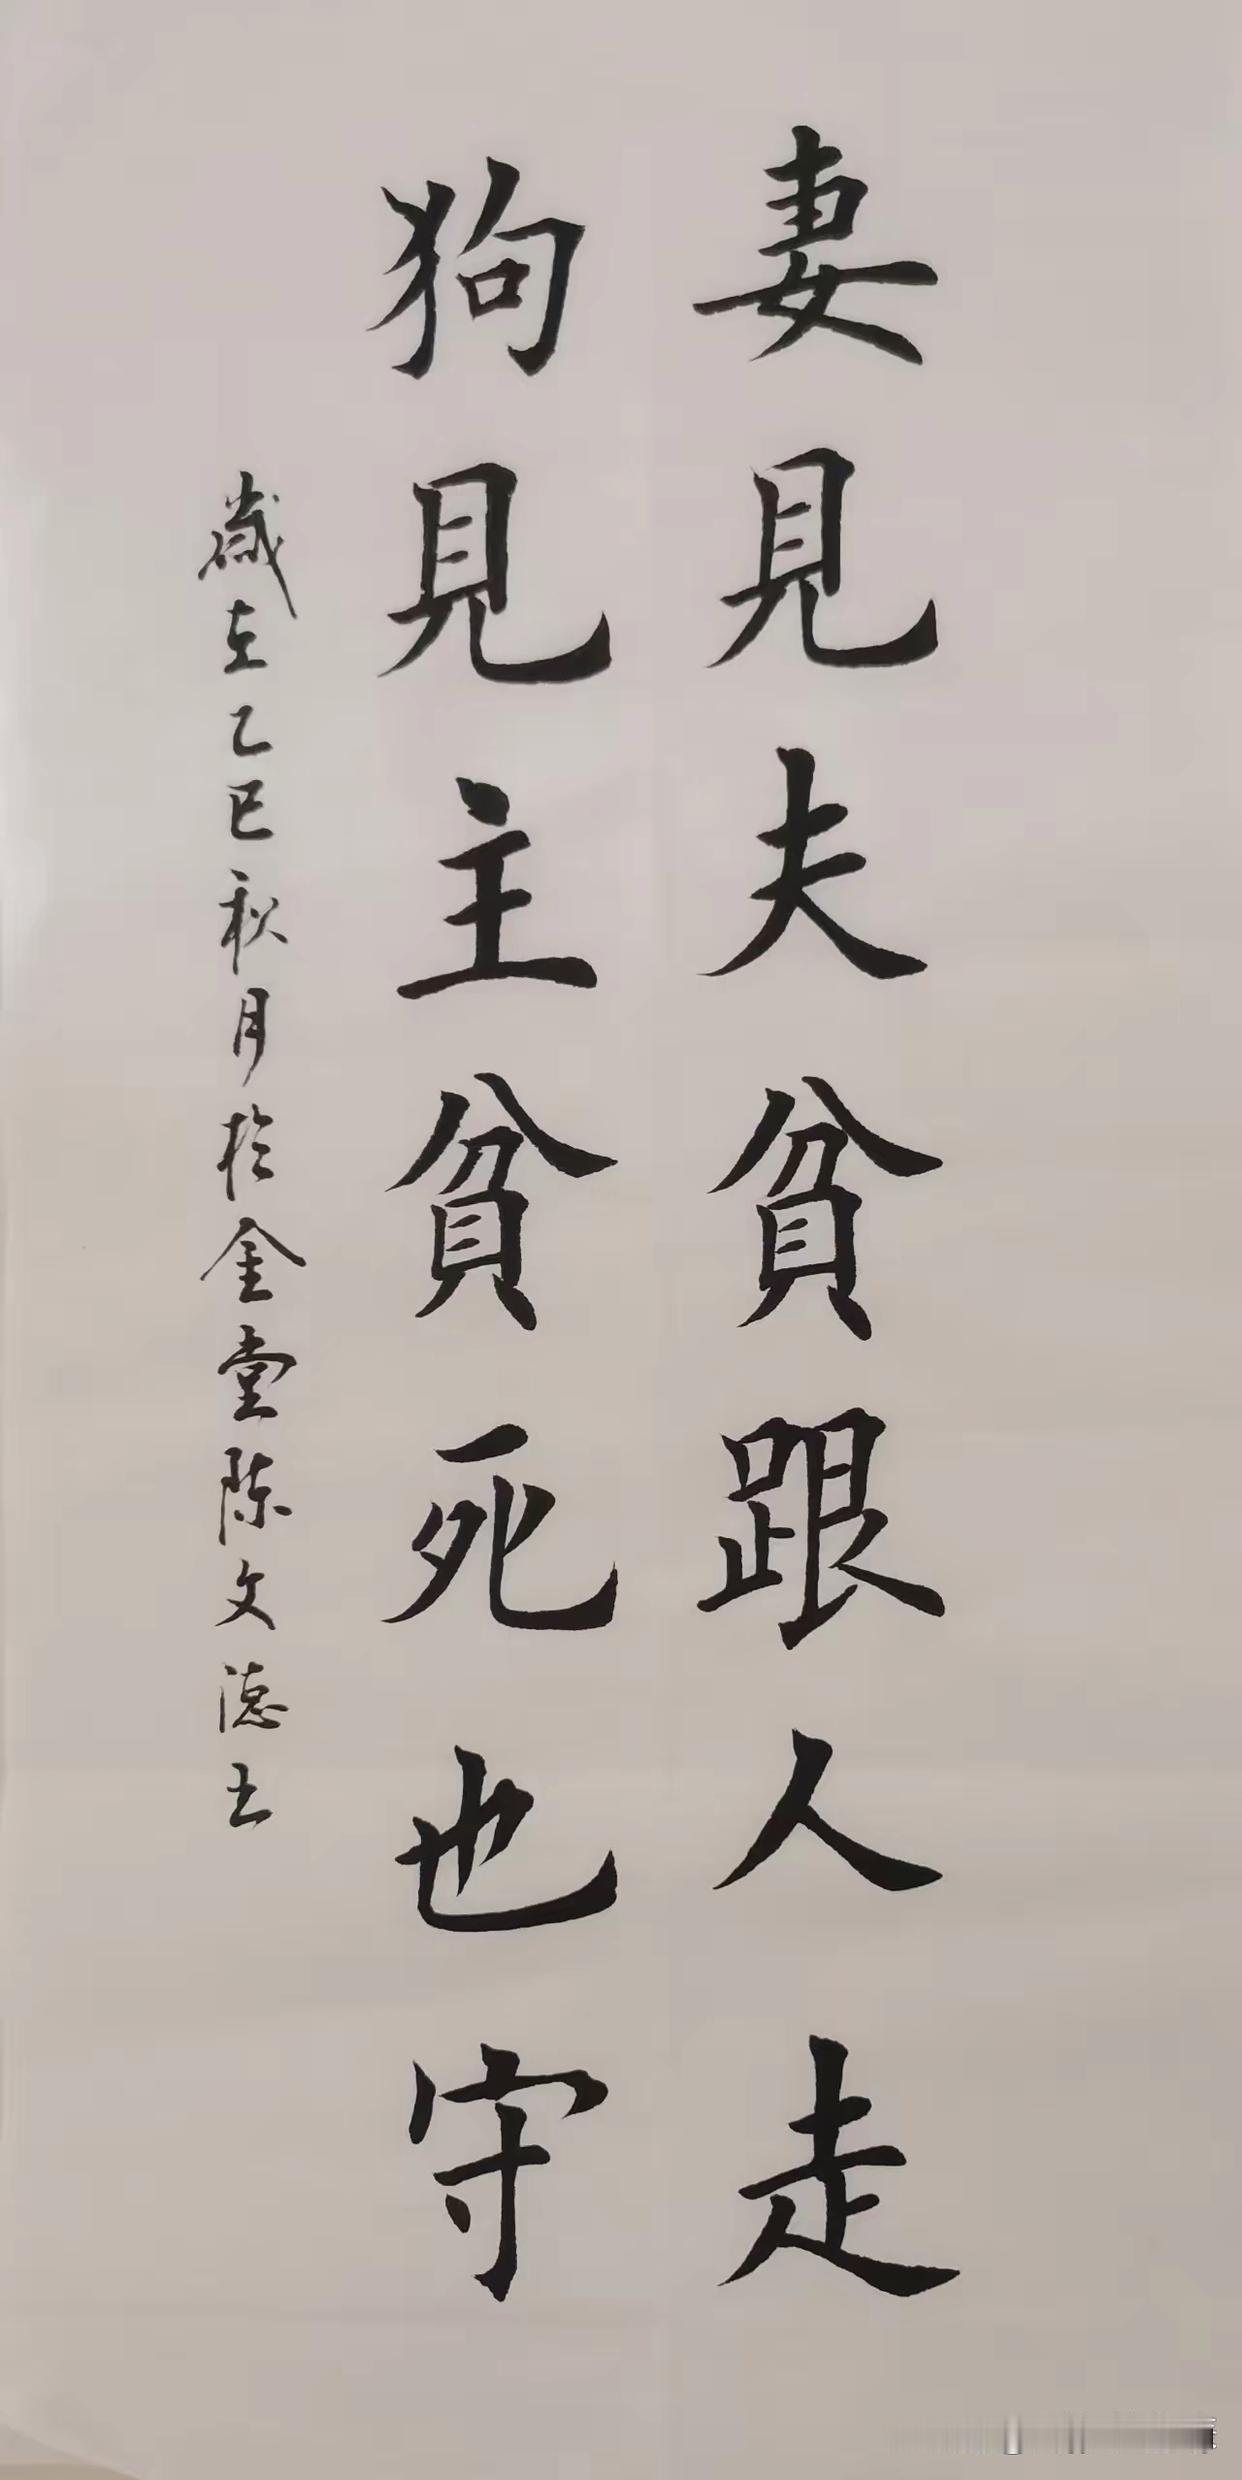 妻見夫貧跟人走
狗見主貧死也守
歲在乙巳秋月於金堂陈文德书